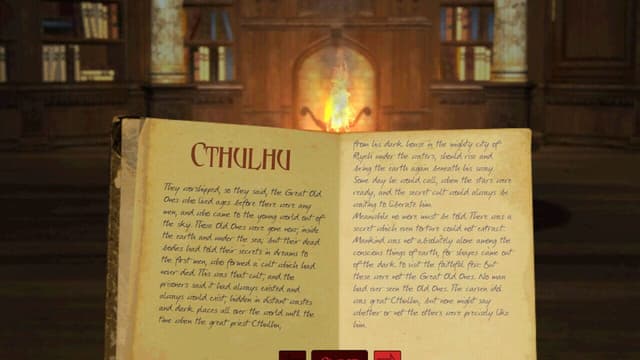 CTHULHU
They worshipped, so they said, the Great Old
Ones who lived ages before there were any
men, and who came to the young world out of
the sky. Those Old Ones were gone now, inside
the earth and under the sea; but their dead
bodies had told their secrets in dreams to
the first men, who formed a cult which had
never died. This was that cult, and the
prisoners said it had always existed and
always would exist, hidden in distant wastes
and dark places all over the world until the
time when the great priest Cthulhu,
from his dark house in the mighty city of
R'lyeh under the waters, should rise and
bring the earth again beneath his sway.
Some day he would call, when the stars were
ready, and the secret cult would always be
waiting to liberate him.
Meanwhile no more must be told. There was a
secret which even torture could not extract.
Mankind was not absolutely alone among the
conscious things of earth, for shapes came out
of the dark to visit the faithful few. But
these were not the Great Old Ones. No man
had ever seen the Old Ones. The carven idol
was great Cthulhu, but none might say
whether or not the others were precisely like
him.